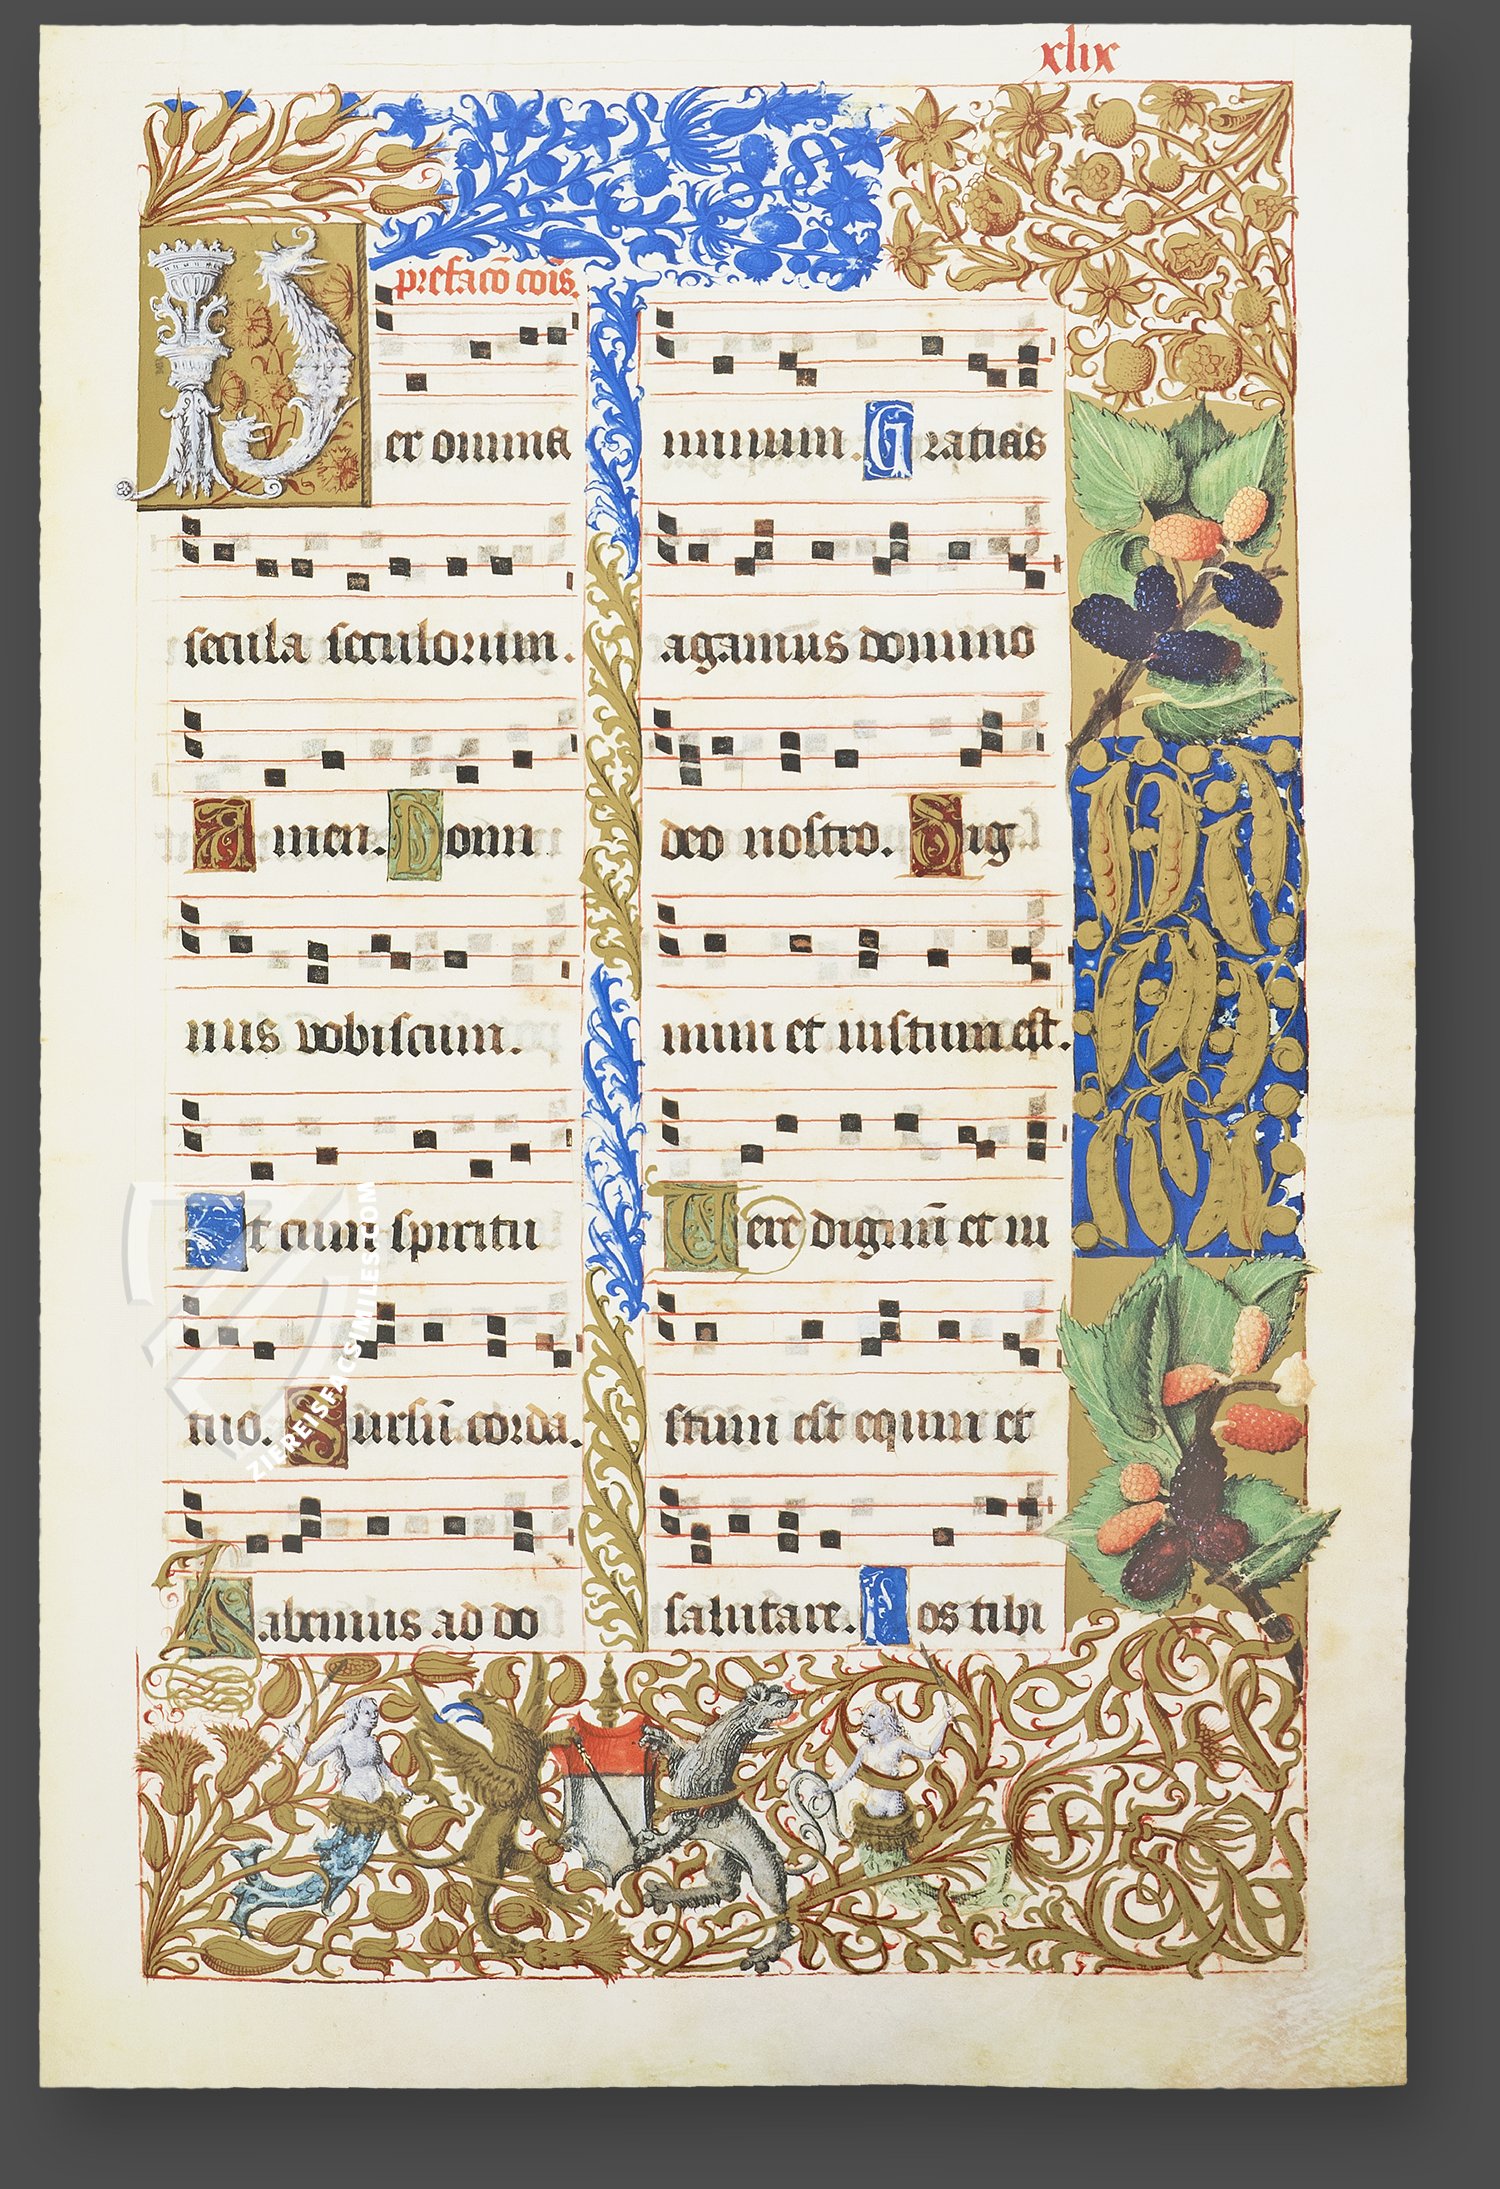 xlix
prefacō cōis.
Per omnia
secula seculorum.
Amen. Domi
nus vobiscum.
Et cum spiritu
tuo. Sursū corda.
Habemus ad do
minum. Gratias
agamus domino
deo nostro. Dig
num et iustum est.
Uere dignū et iu
stum est equm et
salutare. Nos tibi
ZIEREISFACSIMILES.COM